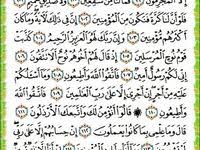 إِلَّا ٱلْمُجْرِمُونَ ٩٩ فَمَا لَنَا مِن شَٰفِعِينَ ١٠٠ وَلَا صَدِيقٍ حَمِيمٍ ١٠١
فَلَوْ أَنَّ لَنَا كَرَّةً فَنَكُونَ مِنَ ٱلْمُؤْمِنِينَ ١٠٢ إِنَّ فِى ذَٰلِكَ لَءَايَةً وَمَا كَانَ
أَكْثَرُهُم مُّؤْمِنِينَ ١٠٣ وَإِنَّ رَبَّكَ لَهُوَ ٱلْعَزِيزُ ٱلرَّحِيمُ ١٠٤ كَذَّبَتْ
قَوْمُ نُوحٍ ٱلْمُرْسَلِينَ ١٠٥ إِذْ قَالَ لَهُمْ أَخُوهُمْ نُوحٌ أَلَا تَتَّقُونَ ١٠٦
إِنِّى لَكُمْ رَسُولٌ أَمِينٌ ١٠٧ فَٱتَّقُوا۟ ٱللَّهَ وَأَطِيعُونِ ١٠٨ وَمَآ أَسْـَٔلُكُمْ
عَلَيْهِ مِنْ أَجْرٍ إِنْ أَجْرِىَ إِلَّا عَلَىٰ رَبِّ ٱلْعَٰلَمِينَ ١٠٩ فَٱتَّقُوا۟ ٱللَّهَ
وَأَطِيعُونِ ١١٠ قَالُوٓا۟ أَنُؤْمِنُ لَكَ وَٱتَّبَعَكَ ٱلْأَرْذَلُونَ ١١١
قَالَ وَمَا عِلْمِى بِمَا كَانُوا۟ يَعْمَلُونَ ١١٢ إِنْ حِسَابُهُمْ إِلَّا عَلَىٰ رَبِّى